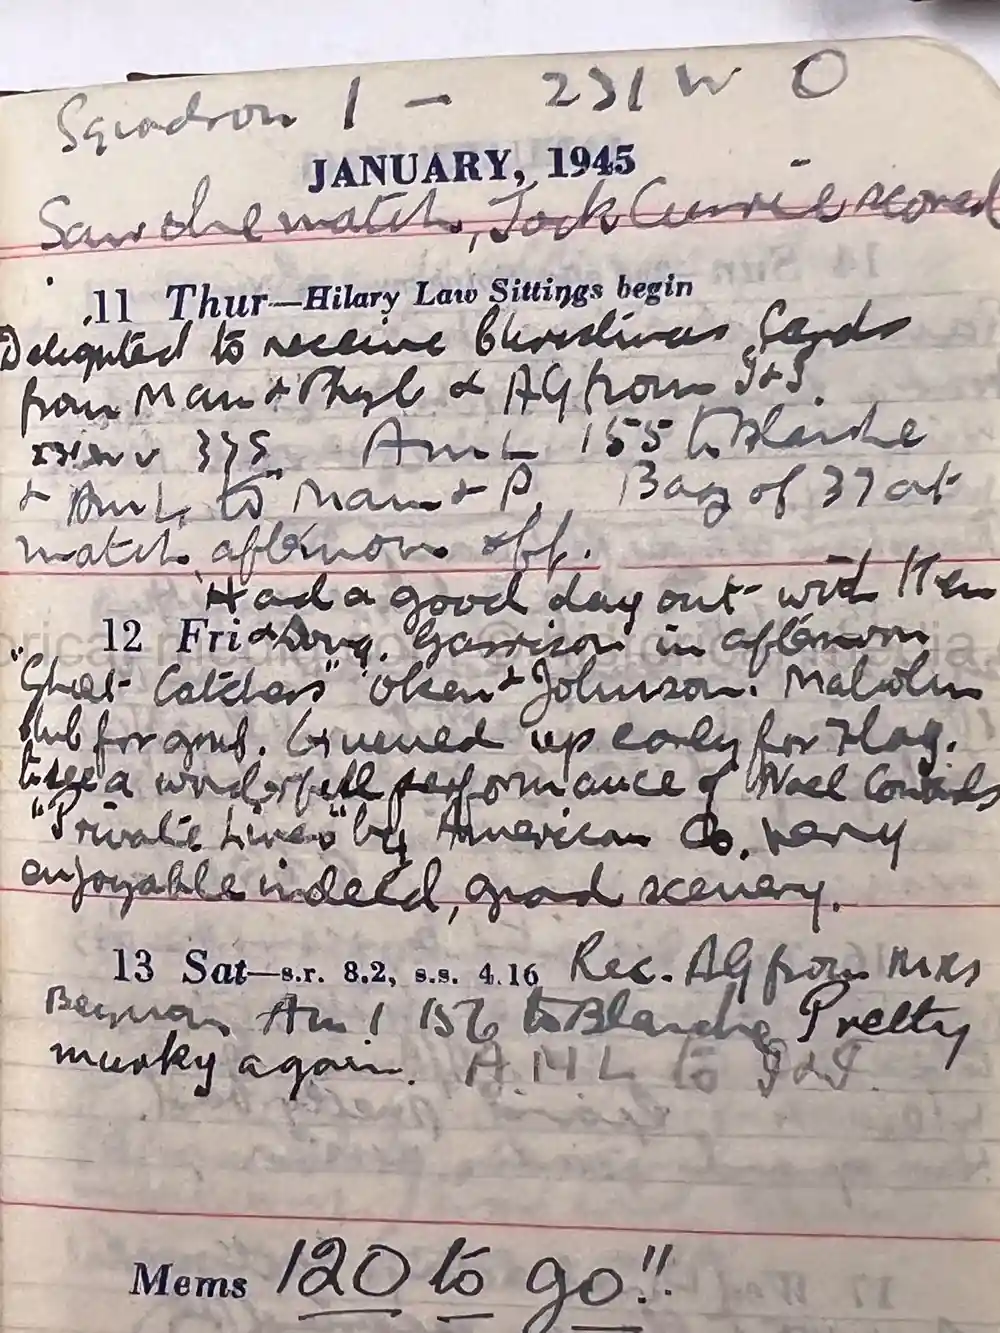 Squadron 1 - 231 W O
JANUARY, 1945
Saw the match, Jock Currie scored
11 Thur—Hilary Law Sittings begin
Delighted to receive Christmas Cards
from Mam & Phyl & AG from J & J.
231 W v 375 Am L 155 to Blanche
& Am L to Mam & P. Bag of 37 at
match afternoon off.
Had a good day out with Ken
12 Fri & Doug. Garrison in afternoon
"Ghost Catchers" Olsen & Johnson. Malcolm
club for grub. Queued up early for Flag.
to see a wonderful performance of Noel Cowards
"Private Lives" by American Co. very
enjoyable indeed, good scenery.
13 Sat—s.r. 8.2, s.s. 4.16 Rec. AG from Mrs
Am L 156 to Blanche Pretty
murky again. A.M L to J & J.
Mems 120 to go!!